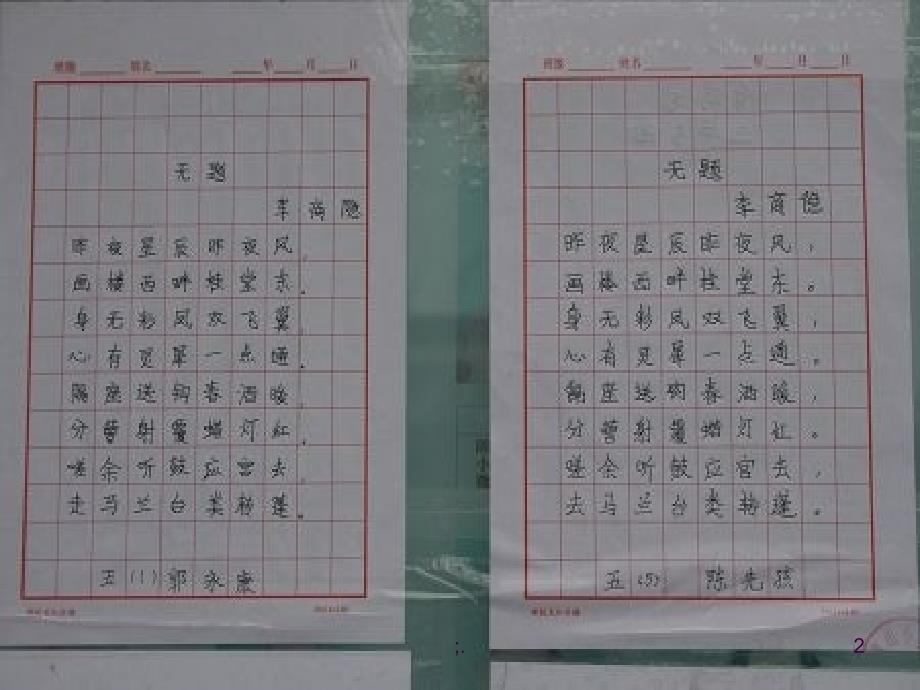 班级 姓名 年 月 日
无题
李商隐
昨夜星辰昨夜风,
画楼西畔桂堂东。
身无彩凤双飞翼,
心有灵犀一点通。
隔座送钩春酒暖,
分曹射覆蜡灯红。
嗟余听鼓应官去,
走马兰台类转蓬。
五(1) 郭永康
班级 姓名 年 月 日
无题
李商隐
昨夜星辰昨夜风,
画楼西畔桂堂东。
身无彩凤双飞翼,
心有灵犀一点通。
隔座送钩春酒暖,
分曹射覆蜡灯红。
嗟余听鼓应官去,
去马兰台类转蓬。
五(5) 陈先孩
;.
2